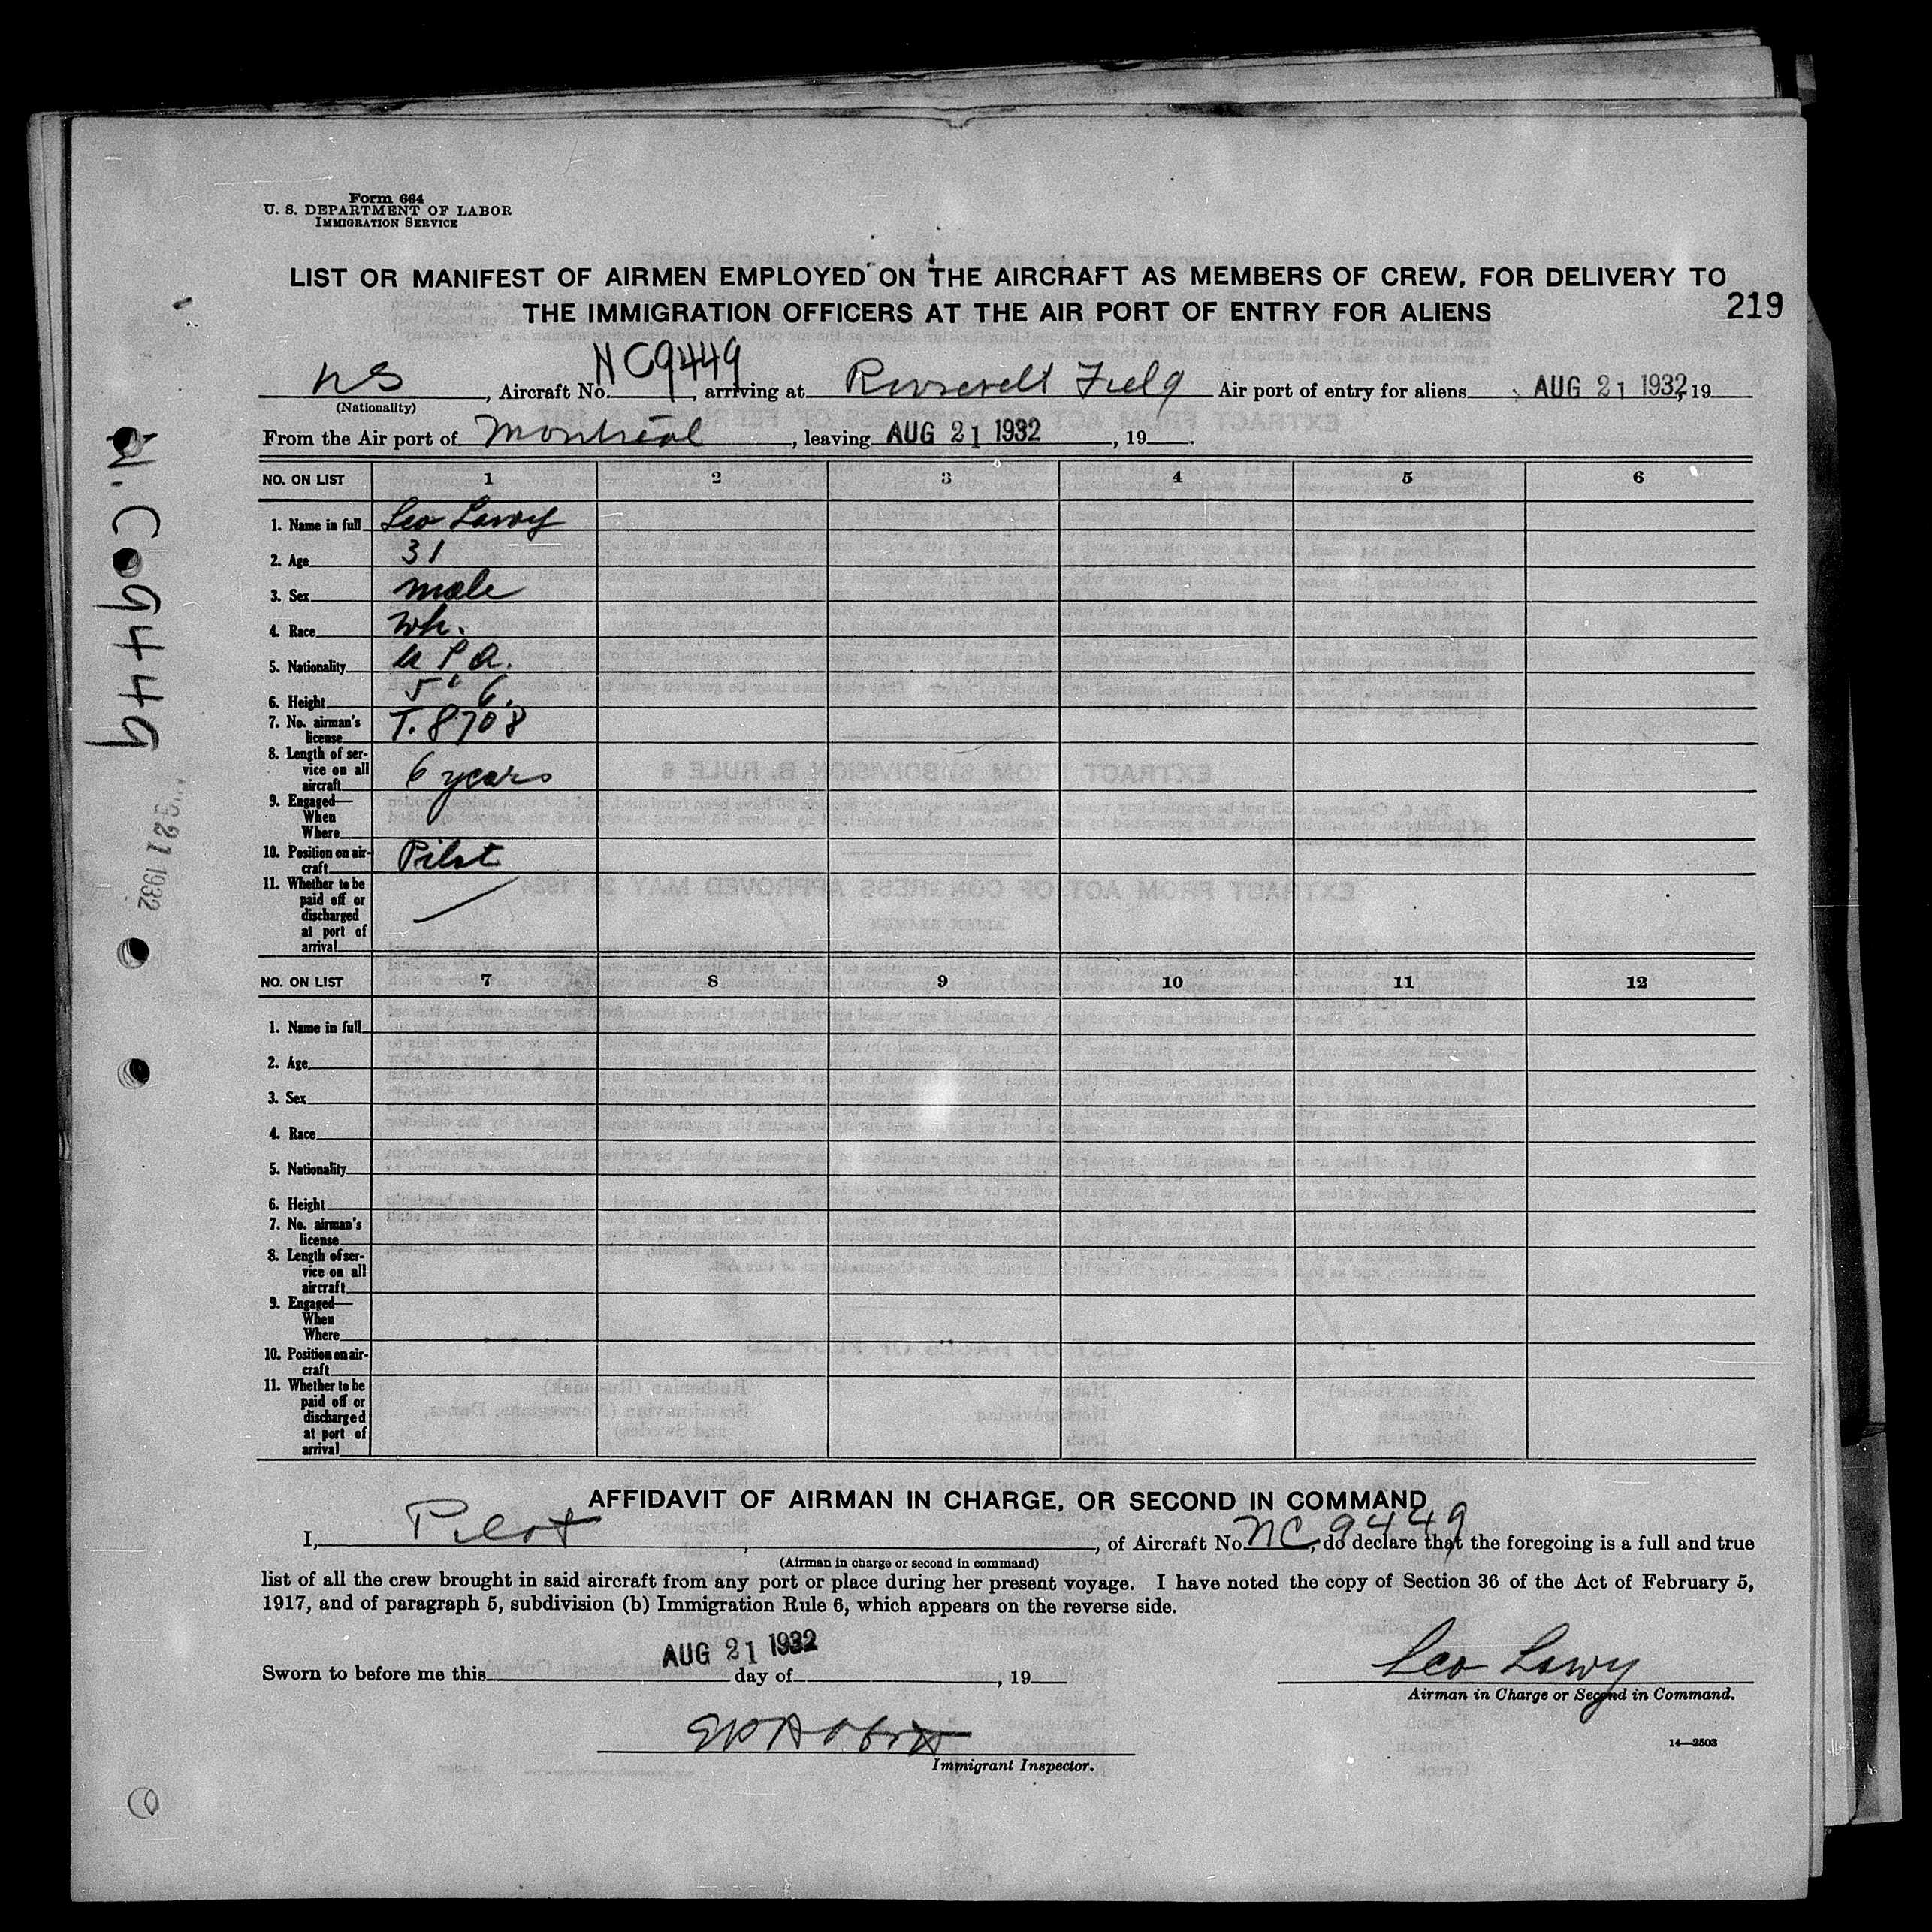 Form 664
U. S. DEPARTMENT OF LABOR
IMMIGRATION SERVICE
LIST OR MANIFEST OF AIRMEN EMPLOYED ON THE AIRCRAFT AS MEMBERS OF CREW, FOR DELIVERY TO
THE IMMIGRATION OFFICERS AT THE AIR PORT OF ENTRY FOR ALIENS
219
US, Aircraft No. NC9449, arriving at Roosevelt Field Air port of entry for aliens AUG 21 1932, 19
(Nationality)
From the Air port of Montreal, leaving AUG 21 1932, 19.
NO. ON LIST 1 2 3 4 5 6
1. Name in full Leo Lowy
2. Age 31
3. Sex male
4. Race wh.
5. Nationality U S A.
6. Height 5' 6
7. No. airman's
license T. 8708
8. Length of ser-
vice on all
aircraft 6 years
9. Engaged—
When
Where
10. Position on air-
craft Pilot
11. Whether to be
paid off or
discharged
at port of
arrival
NO. ON LIST 7 8 9 10 11 12
1. Name in full
2. Age
3. Sex
4. Race
5. Nationality
6. Height
7. No. airman's
license
8. Length of ser-
vice on all
aircraft
9. Engaged—
When
Where
10. Position on air-
craft
11. Whether to be
paid off or
discharged
at port of
arrival
AFFIDAVIT OF AIRMAN IN CHARGE, OR SECOND IN COMMAND
I, Pilot, of Aircraft No. NC 9449, do declare that the foregoing is a full and true
(Airman in charge or second in command)
list of all the crew brought in said aircraft from any port or place during her present voyage. I have noted the copy of Section 36 of the Act of February 5,
1917, and of paragraph 5, subdivision (b) Immigration Rule 6, which appears on the reverse side.
Sworn to before me this AUG 21 1932 day of, 19
Leo Lowy
Airman in Charge or Second in Command.
Immigrant Inspector.
14—2503
N. C. 9449
21 1932